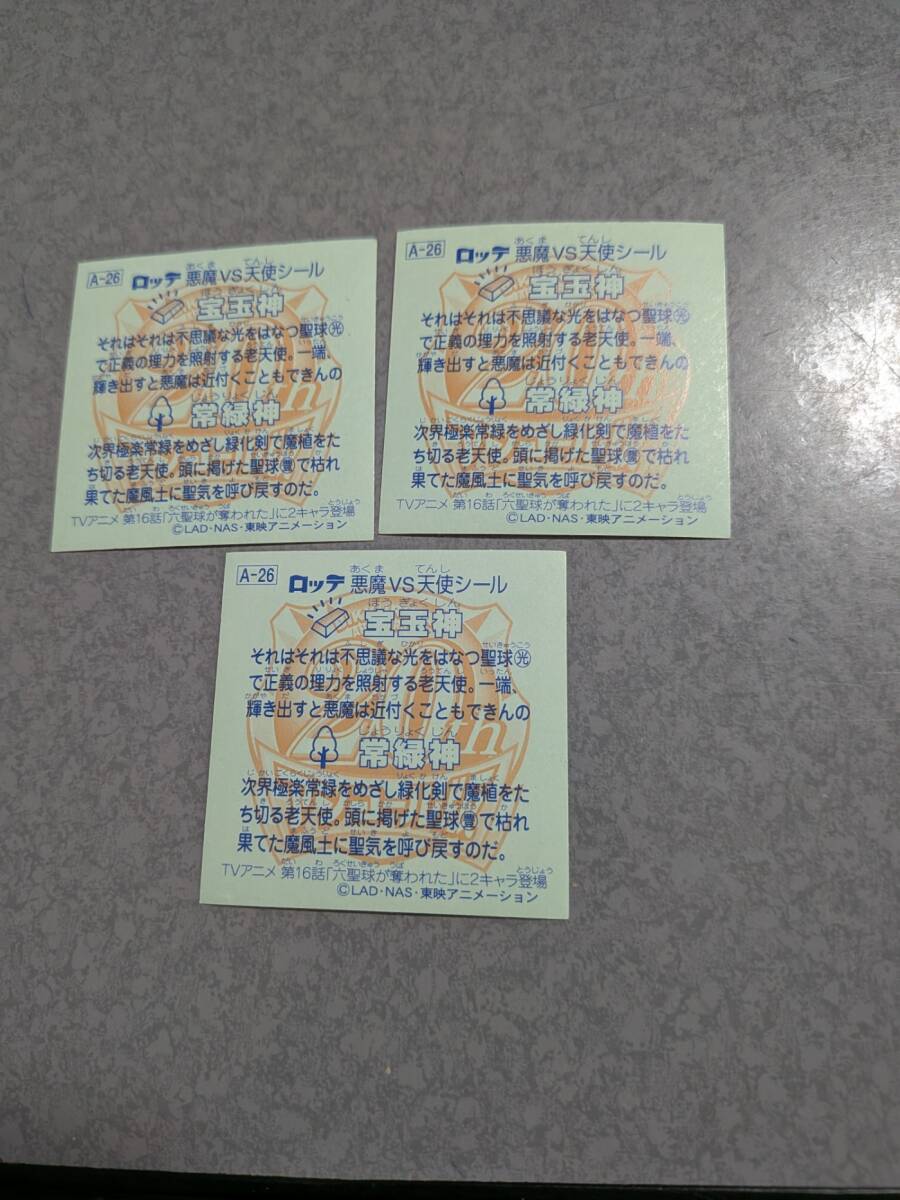 A-26 ロッテ 悪魔VS天使シール
あくま てんし
宝玉神
ほうぎょくしん
それはそれは不思議な光をはなつ聖球光
で正義の理力を照射する老天使。一端、
輝き出すと悪魔は近付くこともできんの
常緑神
じょうりょくしん
次界極楽常緑をめざし緑化剣で魔植をた
ち切る老天使。頭に掲げた聖球豊で枯れ
果てた魔風土に聖気を呼び戻すのだ。
TVアニメ 第16話「六聖球が奪われた」に2キャラ登場
©LAD・NAS・東映アニメーション
A-26 ロッテ 悪魔VS天使シール
あくま てんし
宝玉神
ほうぎょくしん
それはそれは不思議な光をはなつ聖球光
で正義の理力を照射する老天使。一端、
輝き出すと悪魔は近付くこともできんの
常緑神
じょうりょくしん
次界極楽常緑をめざし緑化剣で魔植をた
ち切る老天使。頭に掲げた聖球豊で枯れ
果てた魔風土に聖気を呼び戻すのだ。
TVアニメ 第16話「六聖球が奪われた」に2キャラ登場
©LAD・NAS・東映アニメーション
A-26 ロッテ 悪魔VS天使シール
あくま てんし
宝玉神
ほうぎょくしん
それはそれは不思議な光をはなつ聖球光
で正義の理力を照射する老天使。一端、
輝き出すと悪魔は近付くこともできんの
常緑神
じょうりょくしん
次界極楽常緑をめざし緑化剣で魔植をた
ち切る老天使。頭に掲げた聖球豊で枯れ
果てた魔風土に聖気を呼び戻すのだ。
TVアニメ 第16話「六聖球が奪われた」に2キャラ登場
©LAD・NAS・東映アニメーション